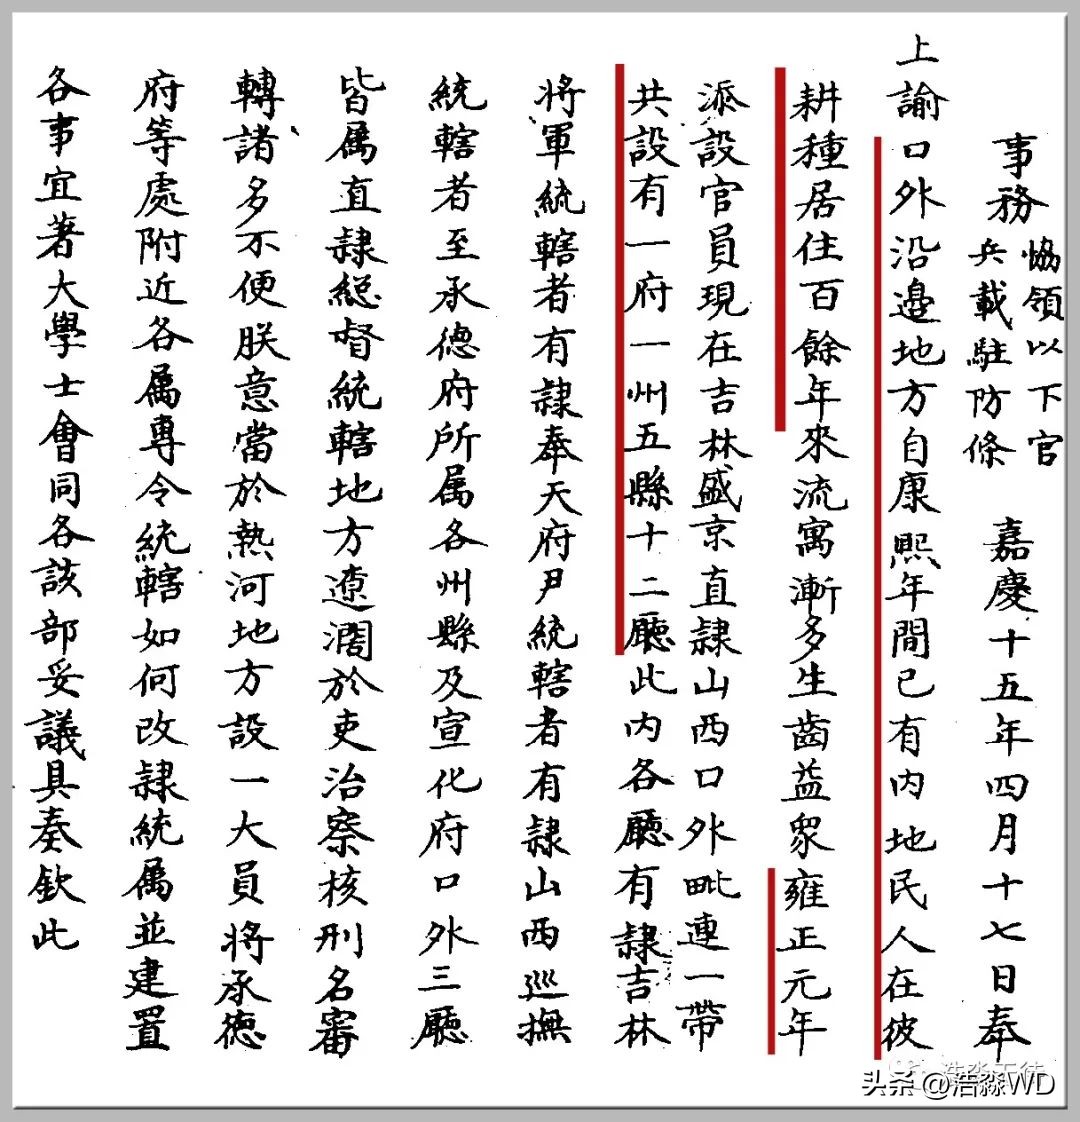 事務協領以下官兵載駐防條 嘉慶十五年四月十七日奉
上諭口外沿邊地方自康熙年間已有內地民人在彼
耕種居住百餘年來流寓漸多生齒益眾雍正元年
派設官員現在吉林盛京直隸山西口外毗連一帶
共設有一府一州五縣十二廳此內各廳有隸吉林
將軍統轄者有隸奉天府尹統轄者有隸山西巡撫
統轄者至承德府所屬各州縣及宣化府口外三廳
皆屬直隸總督統轄地方遼濶於吏治察核刑名審
轉諸多不便朕意當於熱河地方設一大員將承德
府等處附近各屬專令統轄如何改隸統屬並建置
各事宜著大學士會同各該部妥議具奏欽此
头条 @浩淼WD